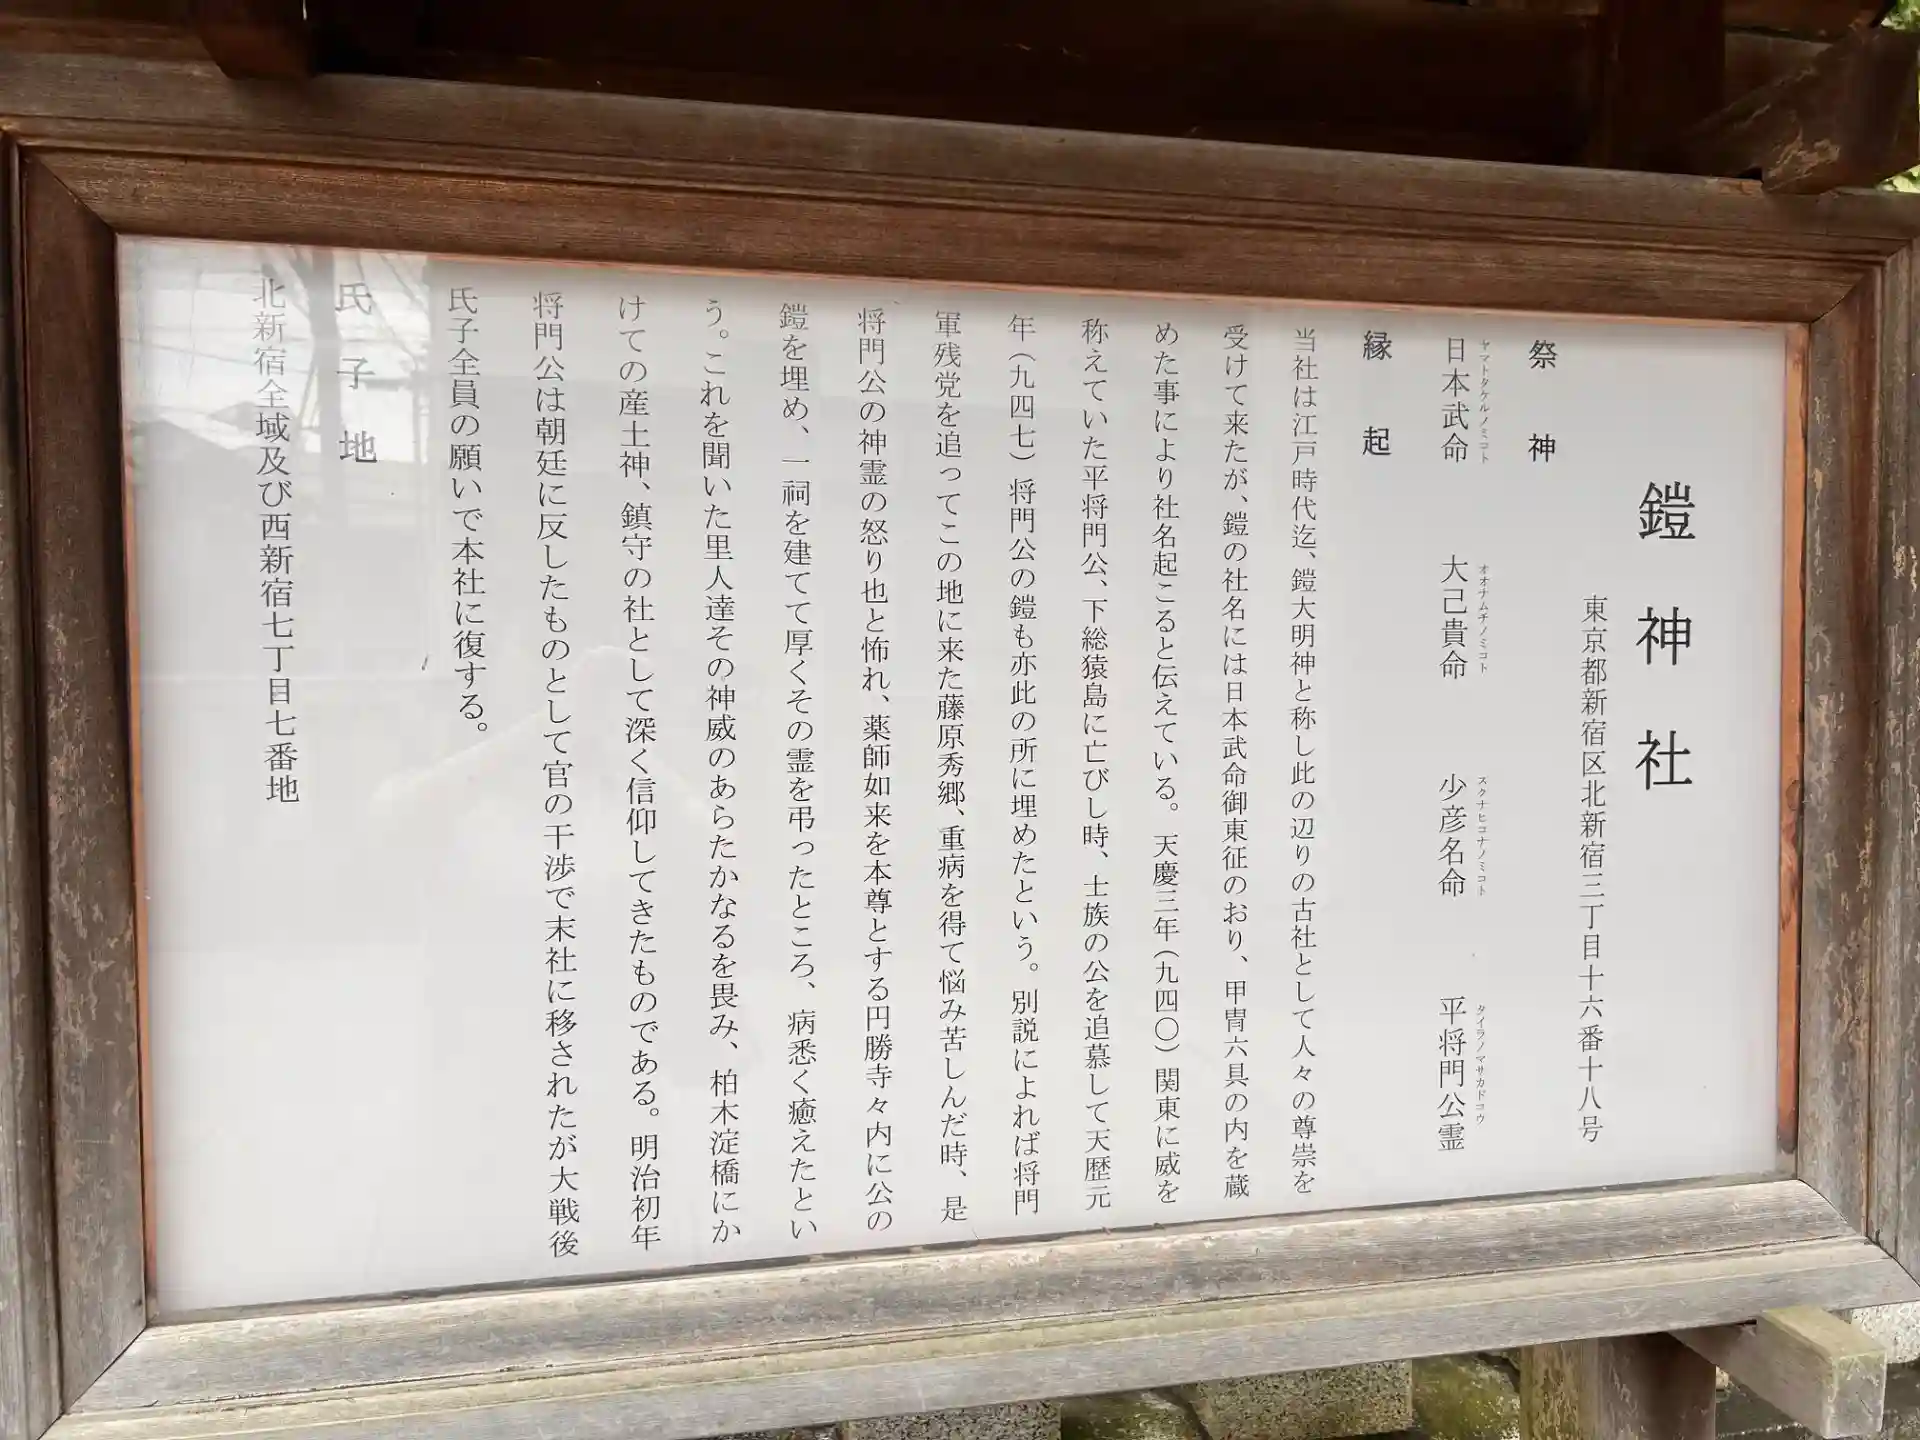 鎧神社
東京都新宿区北新宿三丁目十六番十八号
祭神
ヤマトタケルノミコト オオナムチノミコト スクナヒコナノミコト タイラノマサカドコウ
日本武命 大己貴命 少彦名命 平将門公霊
縁起
当社は江戸時代迄、鎧大明神と称し此の辺りの古社として人々の尊崇を
受けて来たが、鎧の社名には日本武命御東征のおり、甲冑六具の内を蔵
めた事により社名起こると伝えている。天慶三年(九四〇)関東に威を
称えていた平将門公、下総猿島に亡びし時、士族の公を追慕して天歴元
年(九四七)将門公の鎧も亦此の所に埋めたという。別説によれば将門
軍残党を追ってこの地に来た藤原秀郷、重病を得て悩み苦しんだ時、是
将門公の神霊の怒り也と怖れ、薬師如来を本尊とする円勝寺々内に公の
鎧を埋め、一祠を建てて厚くその霊を弔ったところ、病悉く癒えたとい
う。これを聞いた里人達その神威のあらたかなるを畏み、柏木淀橋にか
けての産土神、鎮守の社として深く信仰してきたものである。明治初年
将門公は朝廷に反したものとして官の干渉で末社に移されたが大戦後
氏子全員の願いで本社に復する。
氏子地
北新宿全域及び西新宿七丁目七番地